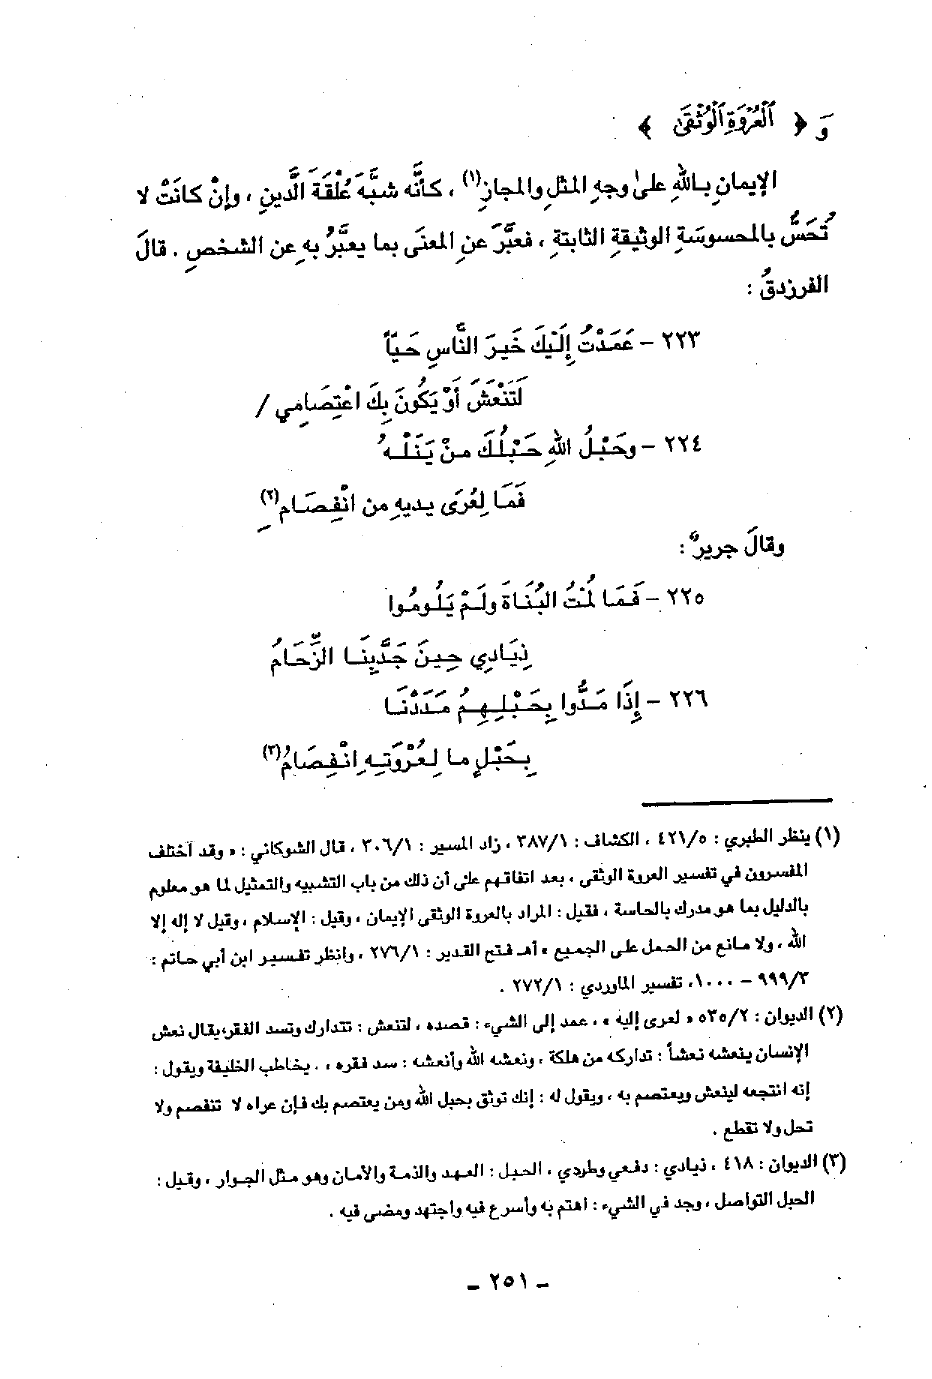 و ﴿ ٱلْعُرْوَةِ ٱلْوُثْقَىٰ ﴾
الإيمانِ بـاللهِ علىٰ وجهِ المثلِ والمجازِ(١) ، كأنَّه شبَّهَ عُلْقَةَ الَّدينِ ، وإنْ كانَتْ لا
تُحَسُّ بالمحسوسَةِ الوثيقةِ الثابتةِ ، فعبَّرَ عنِ المعنَى بما يعبَّرُ بهِ عن الشخصِ . قالَ
الفرزدقُ :
٢٢٣ – عَمَدْتُ إِلَيْكَ خَيرَ النَّاسِ حَيّاً
لَتَنْعَشَ أَوْ يَكُونَ بِكَ اعْتِصَامِي /
٢٢٤ – وحَبْلُ اللهِ حَبْلُكَ منْ يَنَلْـهُ
فَمَا لِعُرَى يديهِ من انْفِصَامِ(٢)
وقالَ جريرٌ :
٢٢٥ – فَمَا لمْتُ البُنَاةَ ولَمْ يَلُومُوا
ذِيَادِي حِينَ جَدَّبِنَا الزِّحَامُ
٢٢٦ – إِذَا مَدُّوا بِحَبْلِهِمُ مَدَدْنَا
بِحَبْلٍ ما لِعُرْوَتِهِ انْفِصَامُ(٣)
(١) ينظر الطبري : ٤٢١/٥ ، الكشاف : ٣٨٧/١ ، زاد المسير : ٣٠٦/١ ، قال الشوكاني : « وقد اختلف
المفسرون في تفسير العروة الوثقى ، بعد اتفاقهم على أن ذلك من باب التشبيه والتمثيل لما هو معلوم
بالدليل بما هو مدرك بالحاسة ، فقيل : المراد بالعروة الوثقى الإيمان ، وقيل : الإسلام ، وقيل لا إله إلا
الله ، ولا مانع من الحمل على الجميع » أهـ فتح القدير : ٢٧٦/١ ، وانظر تفسير ابن أبي حاتم :
٩٩٩/٣ – ١٠٠٠، تفسير الماوردي : ٢٧٢/١ .
(٢) الديوان : ٥٣٥/٢ « لعرى إليه » ، عمد إلى الشيء : قصده ، لتنعش : تتدارك وتسد الفقر؛ يقال نعش
الإنسان ينعشه نعشاً : تداركه من هلكة ، ونعشه الله وأنعشه : سد فقره » . يخاطب الخليفة ويقول :
إنه انتجعه لينعش ويعتصم به ، ويقول له : إنك توثق بحبل الله ومن يعتصم بك فإن عراه لا تنفصم ولا
تحل ولا تقطع .
(٣) الديوان : ٤١٨ ، ذيادي : دفعي وطردي ، الحبل : العهد والذمة والأمان وهو مثل الجوار ، وقيل :
الحبل التواصل ، وجد في الشيء : اهتم به وأسرع فيه واجتهد ومضى فيه .
– ٢٥١ –